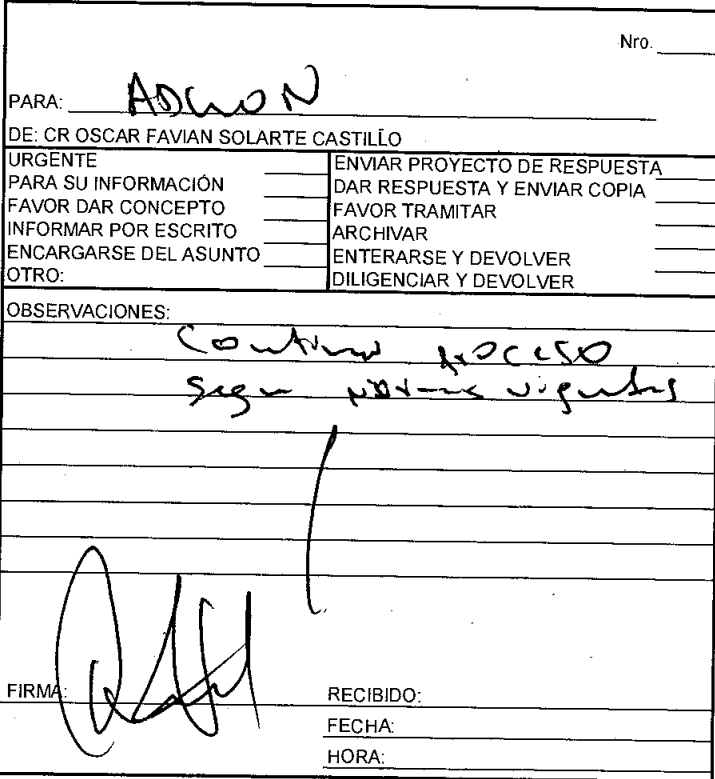 Nro.
PARA: ADMON
DE: CR OSCAR FAVIAN SOLARTE CASTILLO
URGENTE
PARA SU INFORMACIÓN
FAVOR DAR CONCEPTO
INFORMAR POR ESCRITO
ENCARGARSE DEL ASUNTO
OTRO:
ENVIAR PROYECTO DE RESPUESTA
DAR RESPUESTA Y ENVIAR COPIA
FAVOR TRAMITAR
ARCHIVAR
ENTERARSE Y DEVOLVER
DILIGENCIAR Y DEVOLVER
OBSERVACIONES:
Continuar proceso
Segun normas vigentes
FIRMA:
RECIBIDO:
FECHA:
HORA: